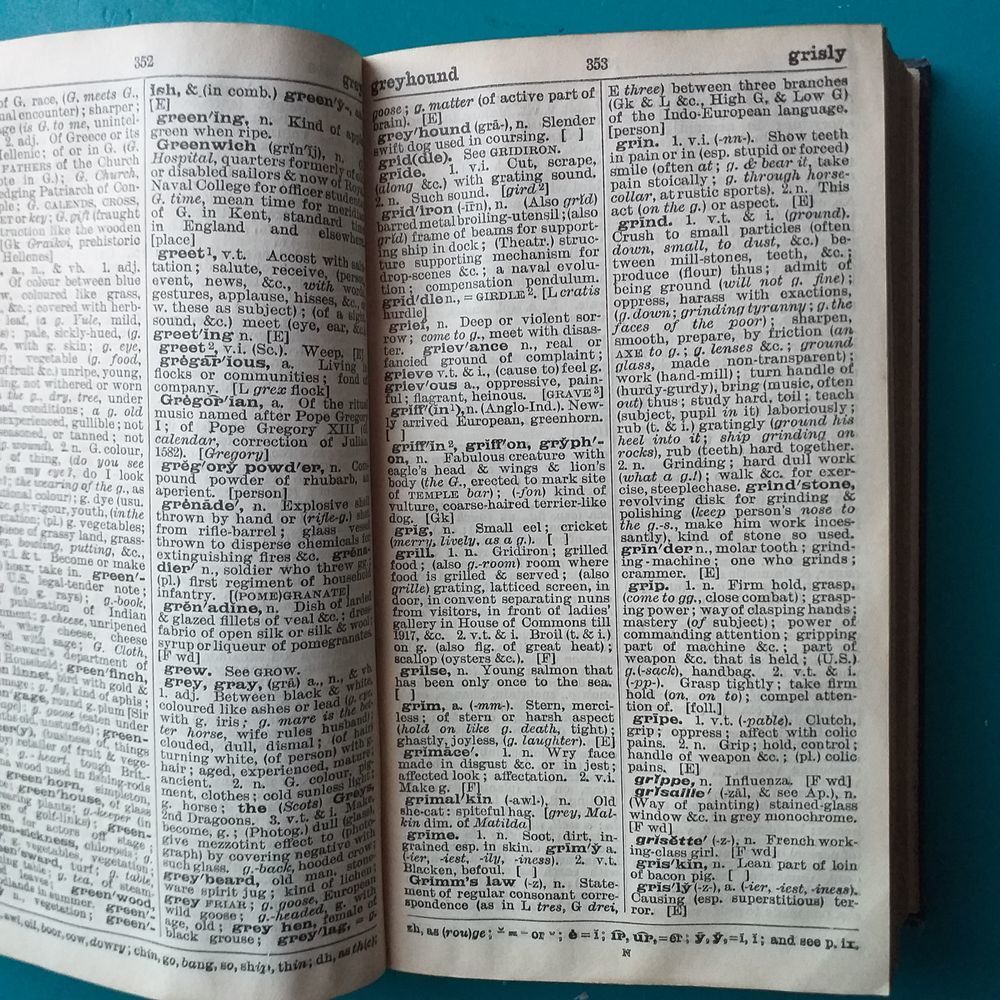 352
of G. race, (G. meets G.,
al encounter); sharper;
age (is G. to me, unintel-
2. adj. Of Greece or its
Hellenic; of or in G. (G.
FATHERS of the Church
ote in G.); G. Church,
edging Patriarch of Con-
ple; G. CALENDS, CROSS,
or key; G. gift (fraught
truction like the wooden
[Gk Graikoi, prehistoric
Hellenes]
a., n., & vb. 1. adj.
Of colour between blue
w, coloured like grass,
&c.; covered with herb-
leaf, (a g. Yule, mild,
s); pale, sickly-hued, (g.
e, with g. skin; g. eye,
y); vegetable (g. food,
of fruit &c.) unripe, young,
ng, not withered or worn
the g., dry, tree, under
ad, conditions; a g. old
experienced, gullible; not
oned, or tanned; not
g. wound. 2. n. G. colour,
of thing, (do you see
in my eye?, do I look
the wearing of the g., as
tional colour); g. dye (usu.
vigour, youth, (in the
(pl.) g. vegetables;
of grassy land, grass-
bowling, putting, &c.,
v.i. & t. Become or make
hoax, take in. green'-
U.S. legal-tender note
(to g. rays); g.-book,
publication of Indian
g. cheese, unripened
whey cheese, cheese
with sage; G. Cloth,
Steward's department of
Household; green'finch,
linnet, bird with gold &
g. fly, kind of aphis;
gage, round g. plum [Sir
ish, & (in comb.) green'y-.
[E]
green'ing, n. Kind of
green when ripe.
Greenwich (grĭn'ĭj), n. G.
Hospital, quarters formerly of old
or disabled sailors & now of Royal
Naval College for officer students;
G. time, mean time for meridian
of G. in Kent, standard time
in England and elsewhere.
[place]
greet¹, v.t. Accost with
tation; salute, receive, (person,
event, news, &c., with words,
gestures, applause, hisses, &c.,
w. these as subject); (of a
sound, &c.) meet (eye, ear,
greet'ing n. [E]
greet², v.i. (Sc.). Weep. [E]
grėgār'ious, a. Living in
flocks or communities; fond of
company. [L grex flock]
Grėgōr'ian, a. Of the ritual
music named after Pope Gregory
I; of Pope Gregory XIII (G.
calendar, correction of Julian
1582). [Gregory]
grĕg'orȳ powd'er, n. Com-
pound powder of rhubarb, an
aperient. [person]
grėnāde', n. Explosive shell
thrown by hand or (rifle-g.)
from rifle-barrel; glass vessel
thrown to disperse chemicals for
extinguishing fires &c. grĕna-
dier' n., soldier who threw gg.;
(pl.) first regiment of household
infantry. [(POME)GRANATE]
grĕn'adine, n. Dish of larded
& glazed fillets of veal &c.; dress-
fabric of open silk or silk & wool;
syrup or liqueur of pomegranates.
[F wd]
grew. See GROW.
grey, gray, (grā) a., n., & vb.
1. adj. Between black & white,
coloured like ashes or lead (g. eye,
with g. iris; g. mare is the bet-
ter horse, wife rules husband);
clouded, dull, dismal; (of hair)
turning white, (of person) with g.
hair; aged, experienced, mature;
ancient. 2. n. G. colour, pig-
ment, clothes; cold sunless light;
g. horse; the (Scots) Greys,
2nd Dragoons. 3. v.t. & i. Make,
become, g.; (Photog.) dull (glass),
give mezzotint effect to (photo-
graph) by covering negative with
such glass. g.-back, hooded crow;
grey'beard, old man, stone-
ware spirit jug; kind of lichen;
grey FRIAR; g. goose, European
wild goose; g.-headed, g. w.
age, old; grey hen, female of
black grouse; grey'lag, = g.
awl, oil, boor, cow, dowry; chin, go, bang, so, ship, thin; dh, as th(e);
greyhound
353
grisly
goose; g. matter (of active part of
brain). [E]
grey'hound (grā-), n. Slender
swift dog used in coursing. [ ]
grid(dle). See GRIDIRON.
gride. 1. v.i. Cut, scrape,
(along &c.) with grating sound.
2. n. Such sound. [gird²]
grid'iron (-īrn), n. (Also grĭd)
barred metal broiling-utensil; (also
grĭd) frame of beams for support-
ing ship in dock; (Theatr.) struc-
ture supporting mechanism for
drop-scenes &c.; a naval evolu-
tion; compensation pendulum.
grid'dle n., = GIRDLE². [L cratis
hurdle]
grief, n. Deep or violent sor-
row; come to g., meet with disas-
ter. griev'ance n., real or
fancied ground of complaint;
grieve v.t. & i., (cause to) feel g.
griev'ous a., oppressive, pain-
ful; flagrant, heinous. [GRAVE³]
grĭff('in¹), n. (Anglo-Ind.). New-
ly arrived European, greenhorn.
[ ]
grĭff'in², grĭff'on, grȳph'-
on, n. Fabulous creature with
eagle's head & wings & lion's
body (the G., erected to mark site
of TEMPLE bar); (-fon) kind of
vulture, coarse-haired terrier-like
dog. [Gk]
grig, n. Small eel; cricket
(merry, lively, as a g.). [ ]
grill. 1. n. Gridiron; grilled
food; (also g.-room) room where
food is grilled & served; (also
grille) grating, latticed screen, in
door, in convent separating nuns
from visitors, in front of ladies'
gallery in House of Commons till
1917, &c. 2. v.t. & i. Broil (t. & i.)
on g. (also fig. of great heat);
scallop (oysters &c.). [F]
grilse, n. Young salmon that
has been only once to the sea.
[ ]
grim, a. (-mm-). Stern, merci-
less; of stern or harsh aspect
(hold on like g. death, tight);
ghastly, joyless, (g. laughter). [E]
grimāce'. 1. n. Wry face
made in disgust &c. or in jest;
affected look; affectation. 2. v.i.
Make g. [F]
grimal'kin (-awl-), n. Old
she-cat: spiteful hag. [grey, Mal-
kin dim. of Matilda]
grime. 1. n. Soot, dirt, in-
grained esp. in skin. grīm'ȳ a.
(-ier, -iest, -ily, -iness). 2. v.t.
Blacken, befoul. [ ]
Grimm's law (-z), n. State-
ment of regular consonant corre-
spondence (as in L tres, G drei,
E three) between three branches
(Gk & L &c., High G, & Low G)
of the Indo-European language.
[person]
grin. 1. v.i. (-nn-). Show teeth
in pain or in (esp. stupid or forced)
smile (often at; g. & bear it, take
pain stoically; g. through horse-
collar, at rustic sports). 2. n. This
act (on the g.) or aspect. [E]
grind. 1. v.t. & i. (ground).
Crush to small particles (often
down, small, to dust, &c.) be-
tween mill-stones, teeth, &c.;
produce (flour) thus; admit of
being ground (will not g. fine);
oppress, harass with exactions,
(g. down; grinding tyranny; g. the
faces of the poor); sharpen,
smooth, prepare, by friction (an
AXE to g.; g. lenses &c.; ground
glass, made non-transparent);
work (hand-mill); turn handle of
(hurdy-gurdy), bring (music, often
out) thus; study hard, toil; teach
(subject, pupil in it) laboriously;
rub (t. & i.) gratingly (ground his
heel into it; ship grinding on
rocks), rub (teeth) hard together.
2. n. Grinding; hard dull work
(what a g.!); walk &c. for exer-
cise, steeplechase. grind'stone,
revolving disk for grinding &
polishing (keep person's nose to
the g.-s., make him work inces-
santly), kind of stone so used.
grīn'der n., molar tooth; grind-
ing-machine; one who grinds;
crammer. [E]
grip. 1. n. Firm hold, grasp,
(come to gg., close combat); grasp-
ing power; way of clasping hands;
mastery (of subject); power of
commanding attention; gripping
part of machine &c.; part of
weapon &c. that is held; (U.S.)
g.(-sack), handbag. 2. v.t. & i.
(-pp-). Grasp tightly; take firm
hold (on, on to); compel atten-
tion of. [foll.]
gripe. 1. v.t. (-pable). Clutch,
grip; oppress; affect with colic
pains. 2. n. Grip; hold, control;
handle of weapon &c.; (pl.) colic
pains. [E]
grippe, n. Influenza. [F wd]
grisaille' (-zāl, & see Ap.), n.
(Way of painting) stained-glass
window &c. in grey monochrome.
[F wd]
grisĕtte' (-z-), n. French work-
ing-class girl. [F wd]
gris'kin, n. Lean part of loin
of bacon pig. [ ]
gris'lȳ (-z-), a. (-ier, -iest, -iness).
Causing (esp. superstitious) ter-
ror. [E]
zh, as (rou)ge; and see p. ix.
N